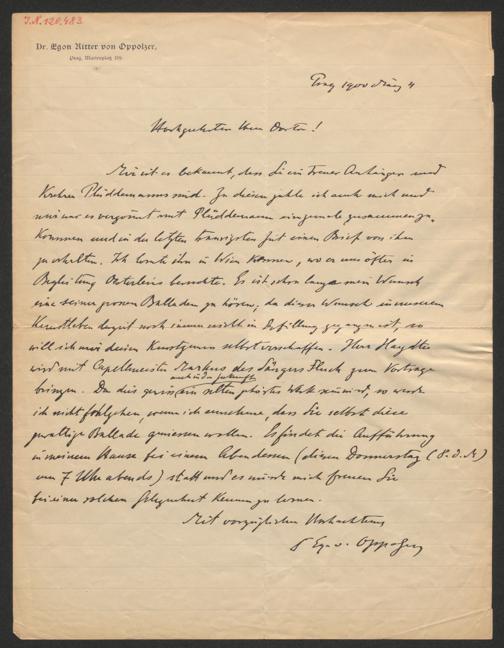 J.N. 120.483
Dr. Egon Ritter von Oppolzer,
Prag,
Prag 1900 März 4
Hochgeehrter Herr Doctor!
Mir ist es bekannt, dass Sie ein treuer Anhänger und
Kenner Plüddemanns sind. Zu diesen zähle ich auch mich und
mir war es vergönnt mit Plüddemann einigemale zusammenzu-
kommen und in der letzten traurigsten Zeit einen Brief von ihm
zu erhalten. Ich lernte ihn in Wien kennen, wo er uns öfters in
Begleitung besuchte. Es ist schon lange mein Wunsch
eine seiner grossen Balladen zu hören; da dieser Wunsch in unserem
Kunstleben derzeit noch immer nicht in Erfüllung gegangen ist, so
will ich mir diesen Kunstgenuss selbst verschaffen. Herr Haydter
wird mit Capellmeister Markus des Sängers Fluch zum Vortrage
auch in der Zukunft
bringen. Da dies gewiss ein selten gehörtes Werk sein wird, so werde
ich nicht fehlgehen, wenn ich annehme, dass Sie selbst diese
gewaltige Ballade geniessen wollen. Es findet die Aufführung
in meinem Hause bei einem Abendessen (diesen Donnerstag (8. d. M)
um 7 Uhr abends) statt und es würde mich freuen Sie
bei einer solchen Gelegenheit kennen zu lernen.
Mit vorzüglicher Hochachtung
Egon v. Oppolzer